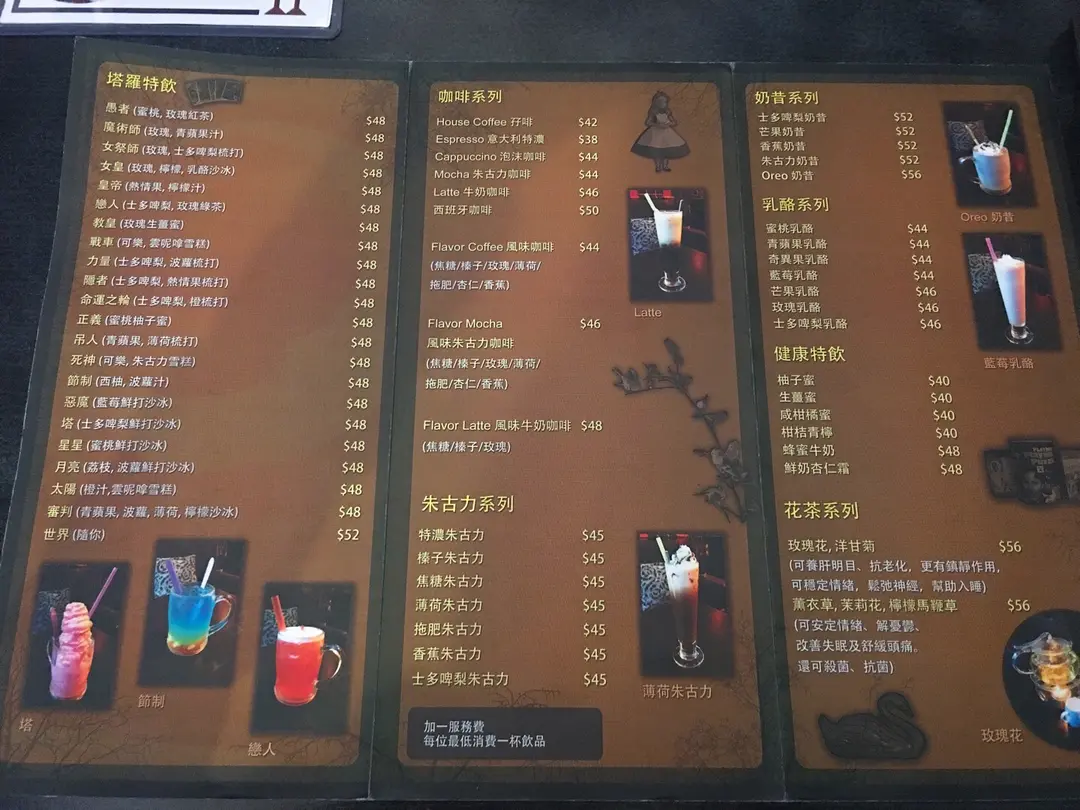 塔羅特飲
愚者 (蜜桃, 玫瑰紅茶) $48
魔術師 (玫瑰, 青蘋果汁) $48
女祭師 (玫瑰, 士多啤梨梳打) $48
女皇 (玫瑰, 檸檬, 乳酪沙冰) $48
皇帝 (熱情果, 檸檬汁) $48
戀人 (士多啤梨, 玫瑰綠茶) $48
教皇 (玫瑰生薑蜜) $48
戰車 (可樂, 雲呢嗱雪糕) $48
力量 (士多啤梨, 波蘿梳打) $48
隱者 (士多啤梨, 熱情果梳打) $48
命運之輪 (士多啤梨, 橙梳打) $48
正義 (蜜桃柚子蜜) $48
吊人 (青蘋果, 薄荷梳打) $48
死神 (可樂, 朱古力雪糕) $48
節制 (西柚, 波蘿汁) $48
惡魔 (藍莓鮮打沙冰) $48
塔 (士多啤梨鮮打沙冰) $48
星星 (蜜桃鮮打沙冰) $48
月亮 (荔枝, 波蘿鮮打沙冰) $48
太陽 (橙汁,雲呢嗱雪糕) $48
審判 (青蘋果, 波蘿, 薄荷, 檸檬沙冰) $48
世界 (隨你) $52
塔
節制
戀人
咖啡系列
House Coffee 孖啡 $42
Espresso 意大利特濃 $38
Cappuccino 泡沫咖啡 $44
Mocha 朱古力咖啡 $44
Latte 牛奶咖啡 $46
西班牙咖啡 $50
Flavor Coffee 風味咖啡 $44
(焦糖/榛子/玫瑰/薄荷/
拖肥/杏仁/香蕉)
Flavor Mocha $46
風味朱古力咖啡
(焦糖/榛子/玫瑰/薄荷/
拖肥/杏仁/香蕉)
Flavor Latte 風味牛奶咖啡 $48
(焦糖/榛子/玫瑰)
Latte
朱古力系列
特濃朱古力 $45
榛子朱古力 $45
焦糖朱古力 $45
薄荷朱古力 $45
拖肥朱古力 $45
香蕉朱古力 $45
士多啤梨朱古力 $45
薄荷朱古力
加一服務費
每位最低消費一杯飲品
奶昔系列
士多啤梨奶昔 $52
芒果奶昔 $52
香蕉奶昔 $52
朱古力奶昔 $52
Oreo 奶昔 $56
Oreo 奶昔
乳酪系列
蜜桃乳酪 $44
青蘋果乳酪 $44
奇異果乳酪 $44
藍莓乳酪 $44
芒果乳酪 $46
玫瑰乳酪 $46
士多啤梨乳酪 $46
藍莓乳酪
健康特飲
柚子蜜 $40
生薑蜜 $40
咸柑橘蜜 $40
柑桔青檸 $40
蜂蜜牛奶 $48
鮮奶杏仁霜 $48
花茶系列
玫瑰花, 洋甘菊 $56
(可養肝明目、抗老化，更有鎮靜作用，
可穩定情緒，鬆弛神經，幫助入睡)
薰衣草, 茉莉花, 檸檬馬鞭草 $56
(可安定情緒、解憂鬱、
改善失眠及舒緩頭痛。
還可殺菌、抗菌)
玫瑰花